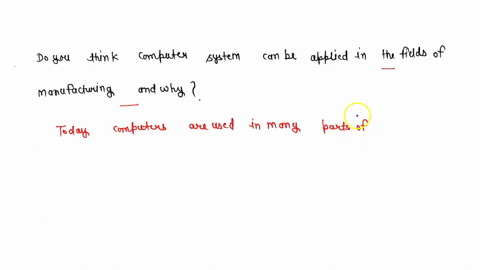 Do you think computer system can be applied in the fields of
manufacturing and why?
Today computers are used in many parts of